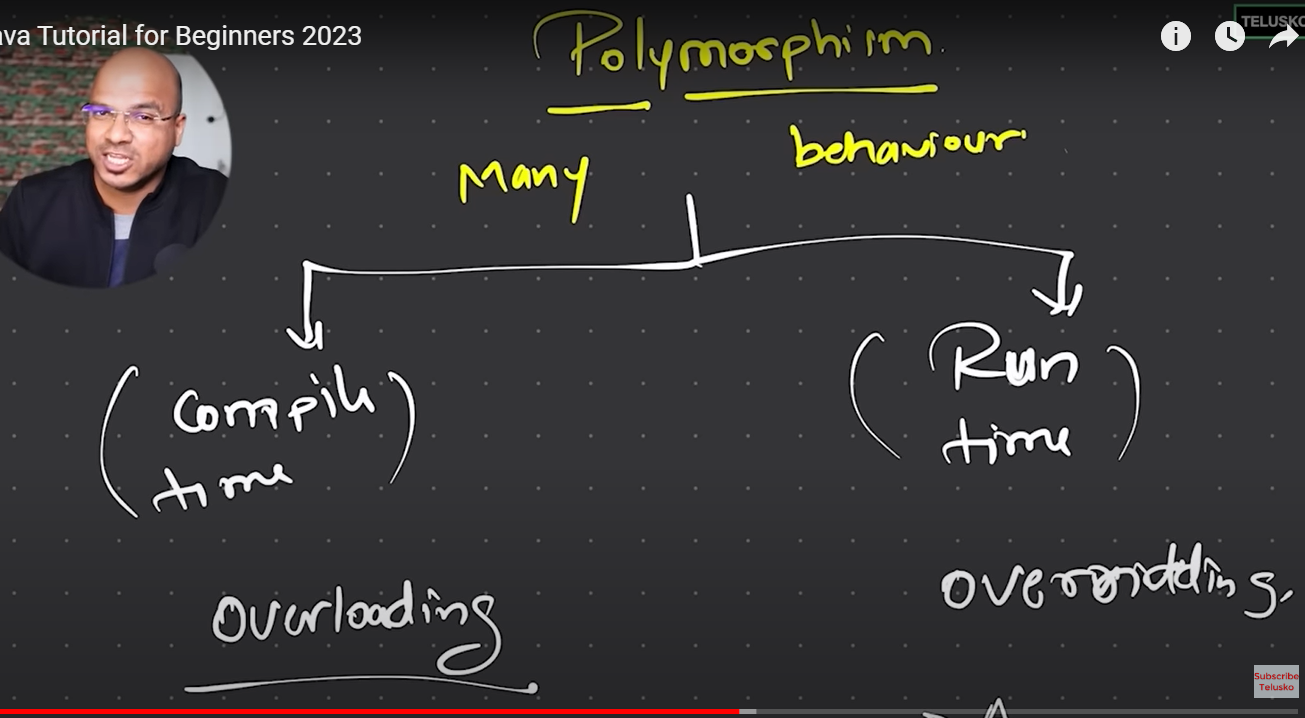 ava Tutorial for Beginners 2023
TELUSKO
Polymorphism.
Many
behaviour
(Compile
time)
(Run
time)
Overloading
Overridding.
Subscribe
Telusko